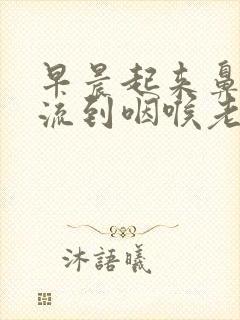 早晨起来鼻
流到咽喉老
沐語曦